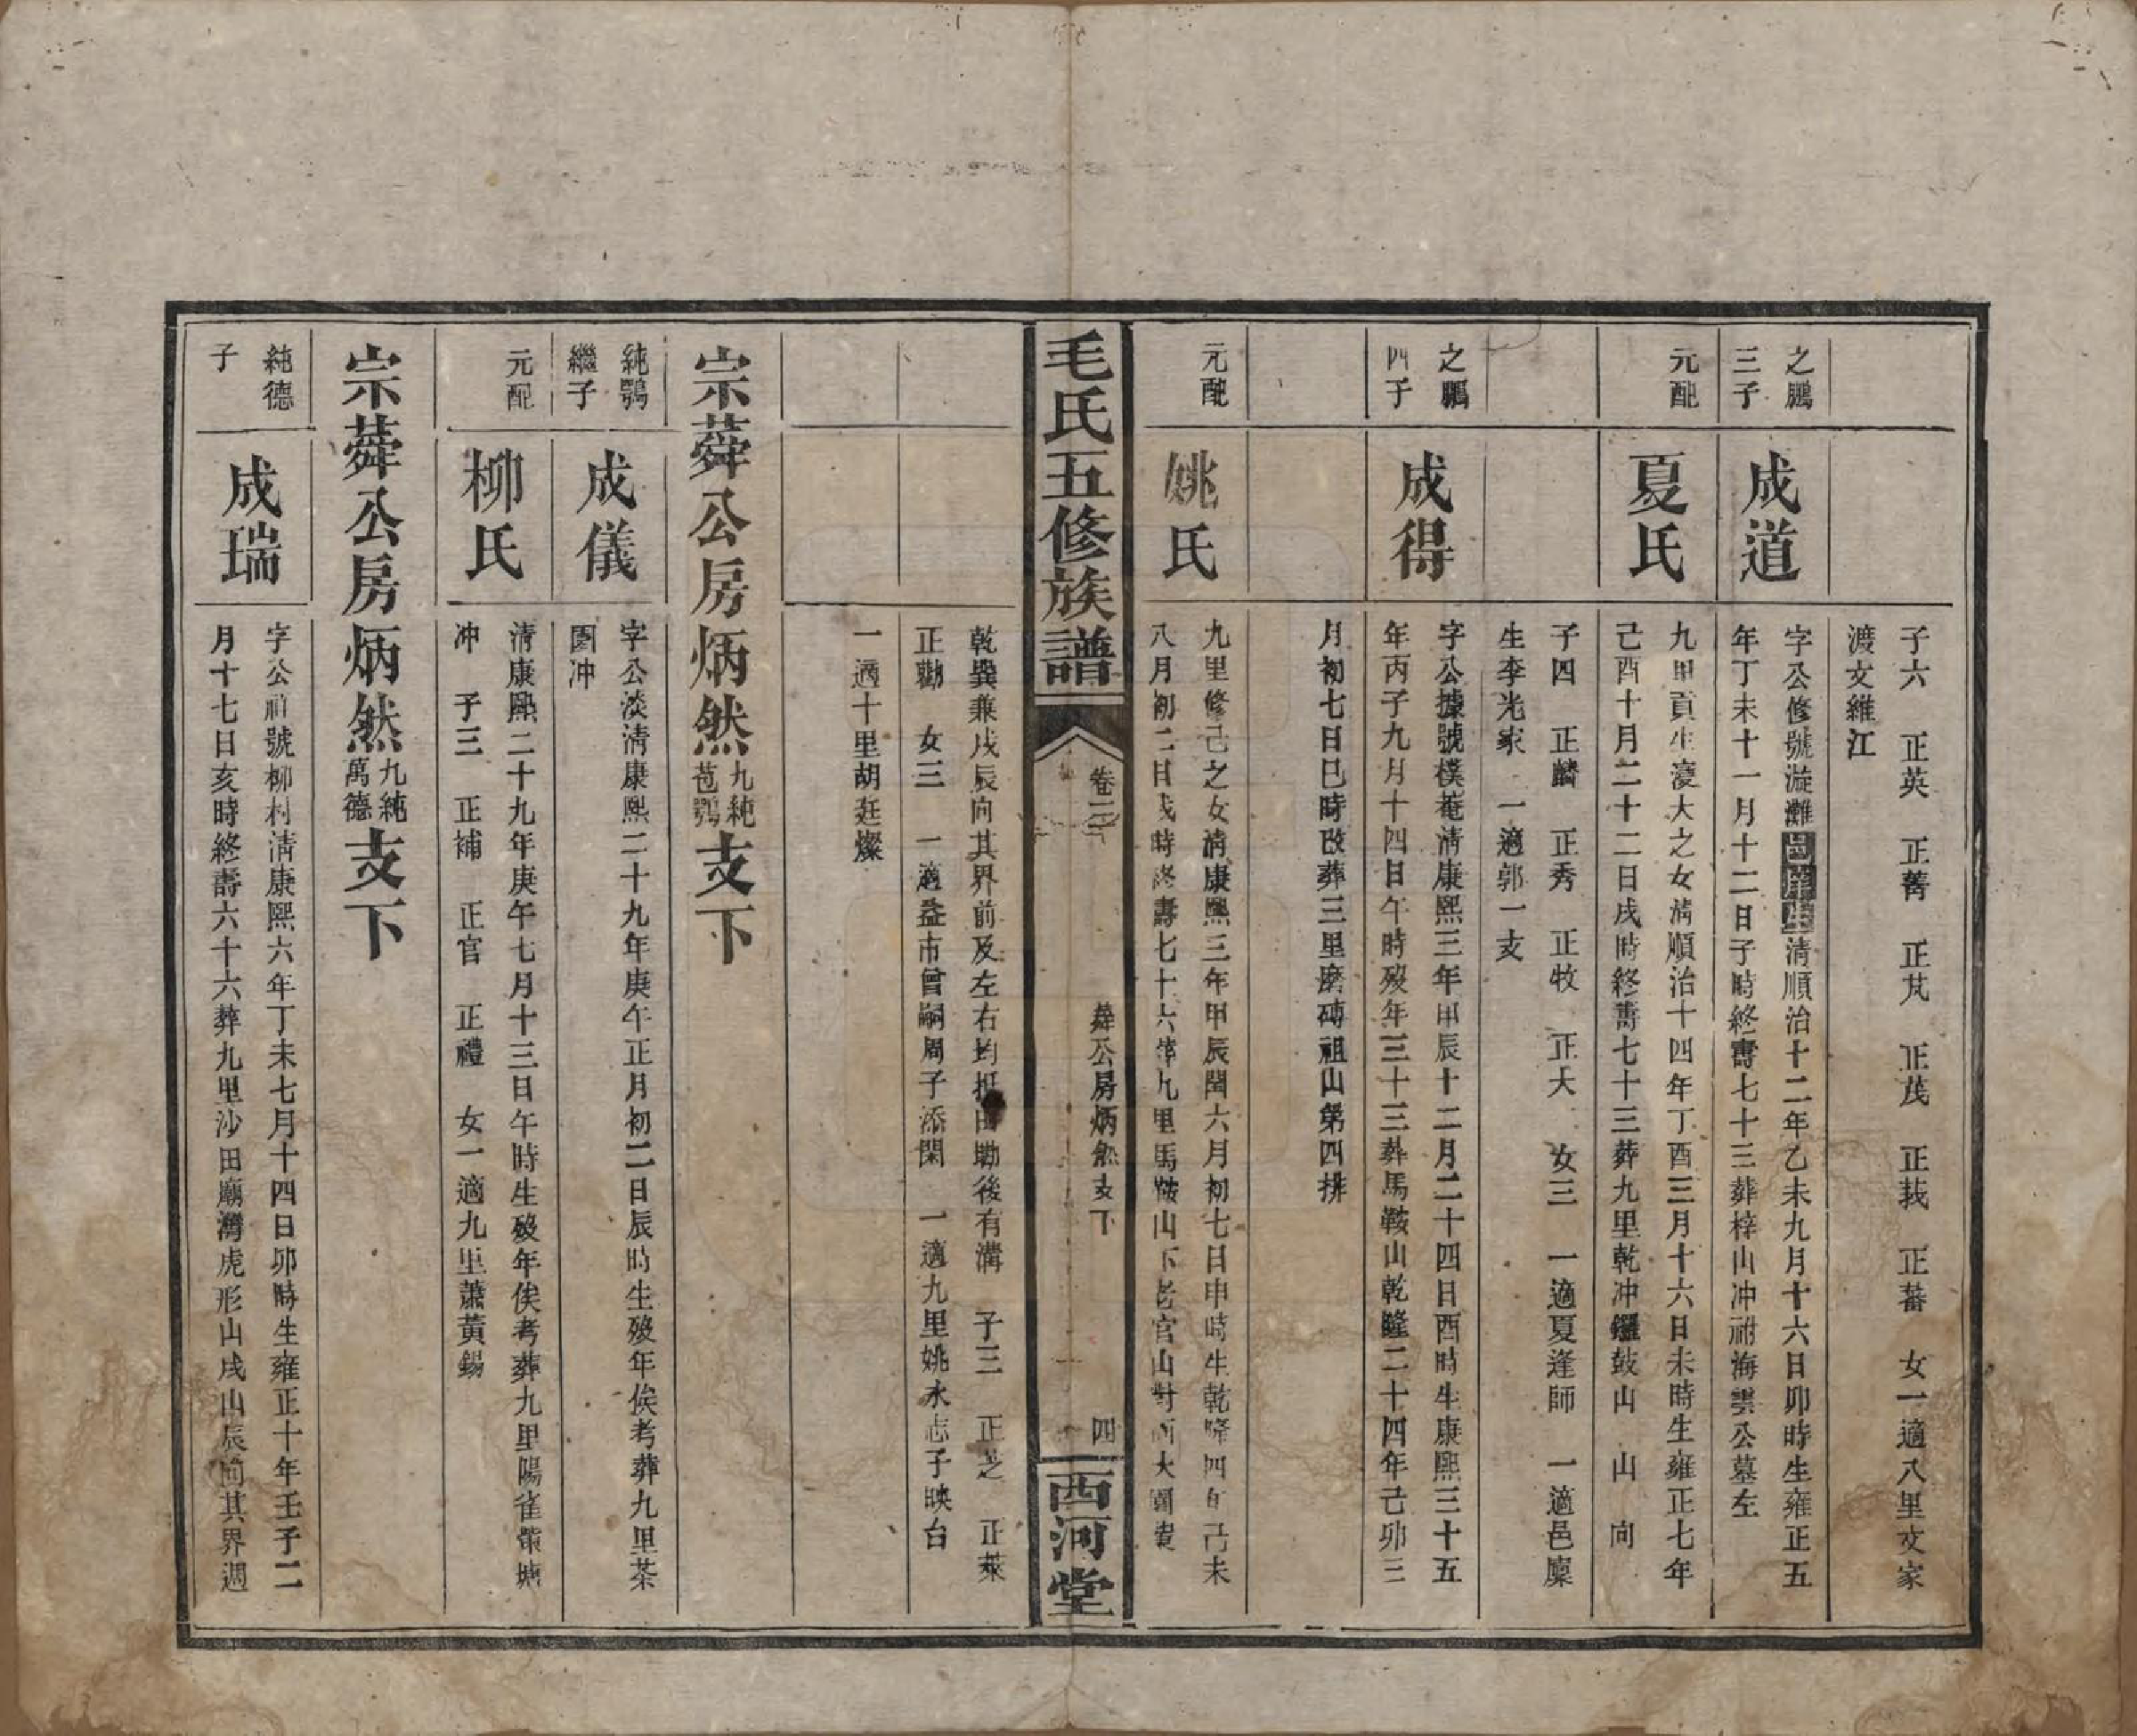 子六　正英　正菁　正芃　正茂　正莪　正蕃　女一適八里文家
渡文維江
之鵬
三子
成道
字公修號漩灘邑庠生清順治十二年乙未九月十六日卯時生雍正五
年丁未十一月十二日子時終壽七十三葬梓山冲祔海雲公墓左
元配
夏氏
九里貢生夏大之女清順治十四年丁酉三月十六日未時生雍正七年
己酉十月二十二日戌時終壽七十三葬九里乾冲鑼鼓山　山　向
子四　正麟　正秀　正牧　正大　女三　一適夏逢師　一適邑廩
生李光家　一適郭一支
之鵬
四子
成得
字公據號樸菴清康熙三年甲辰十二月二十四日酉時生康熙三十五
年丙子九月十四日午時歿年三十三葬馬鞍山乾隆二十四年己卯三
月初七日巳時改葬三里磨磚祖山第四排
元配
姚氏
九里修己之女清康熙三年甲辰閏六月初七日申時生乾隆四年己未
八月初二日戌時終壽七十六葬九里馬鞍山下老官山對面大園
毛氏五修族譜
卷二
蕣公房炳然支下
四
西河堂
乾巽兼戌辰向其界前及左右均抵田勘後有溝　子三　正芝　正萊
正勸　女三　一適益市曾嗣周子添閑　一適九里姚永志子映台
一適十里胡廷燦
宗蕣公房炳然九純苞鶚支下
純鶚
繼子
成儀
字公淡清康熙二十九年庚午正月初二日辰時生歿年俟考葬九里茶
園冲
元配
柳氏
清康熙二十九年庚午七月十三日午時生歿年俟考葬九里陽雀塘
冲　子三　正補　正官　正禮　女一適九里蕭黃錫
宗蕣公房炳然九純萬德支下
純德
子
成瑞
字公祖號柳村清康熙六年丁未七月十四日卯時生雍正十年壬子二
月十七日亥時終壽六十六葬九里沙田廟灣虎形山戌山辰向其界週